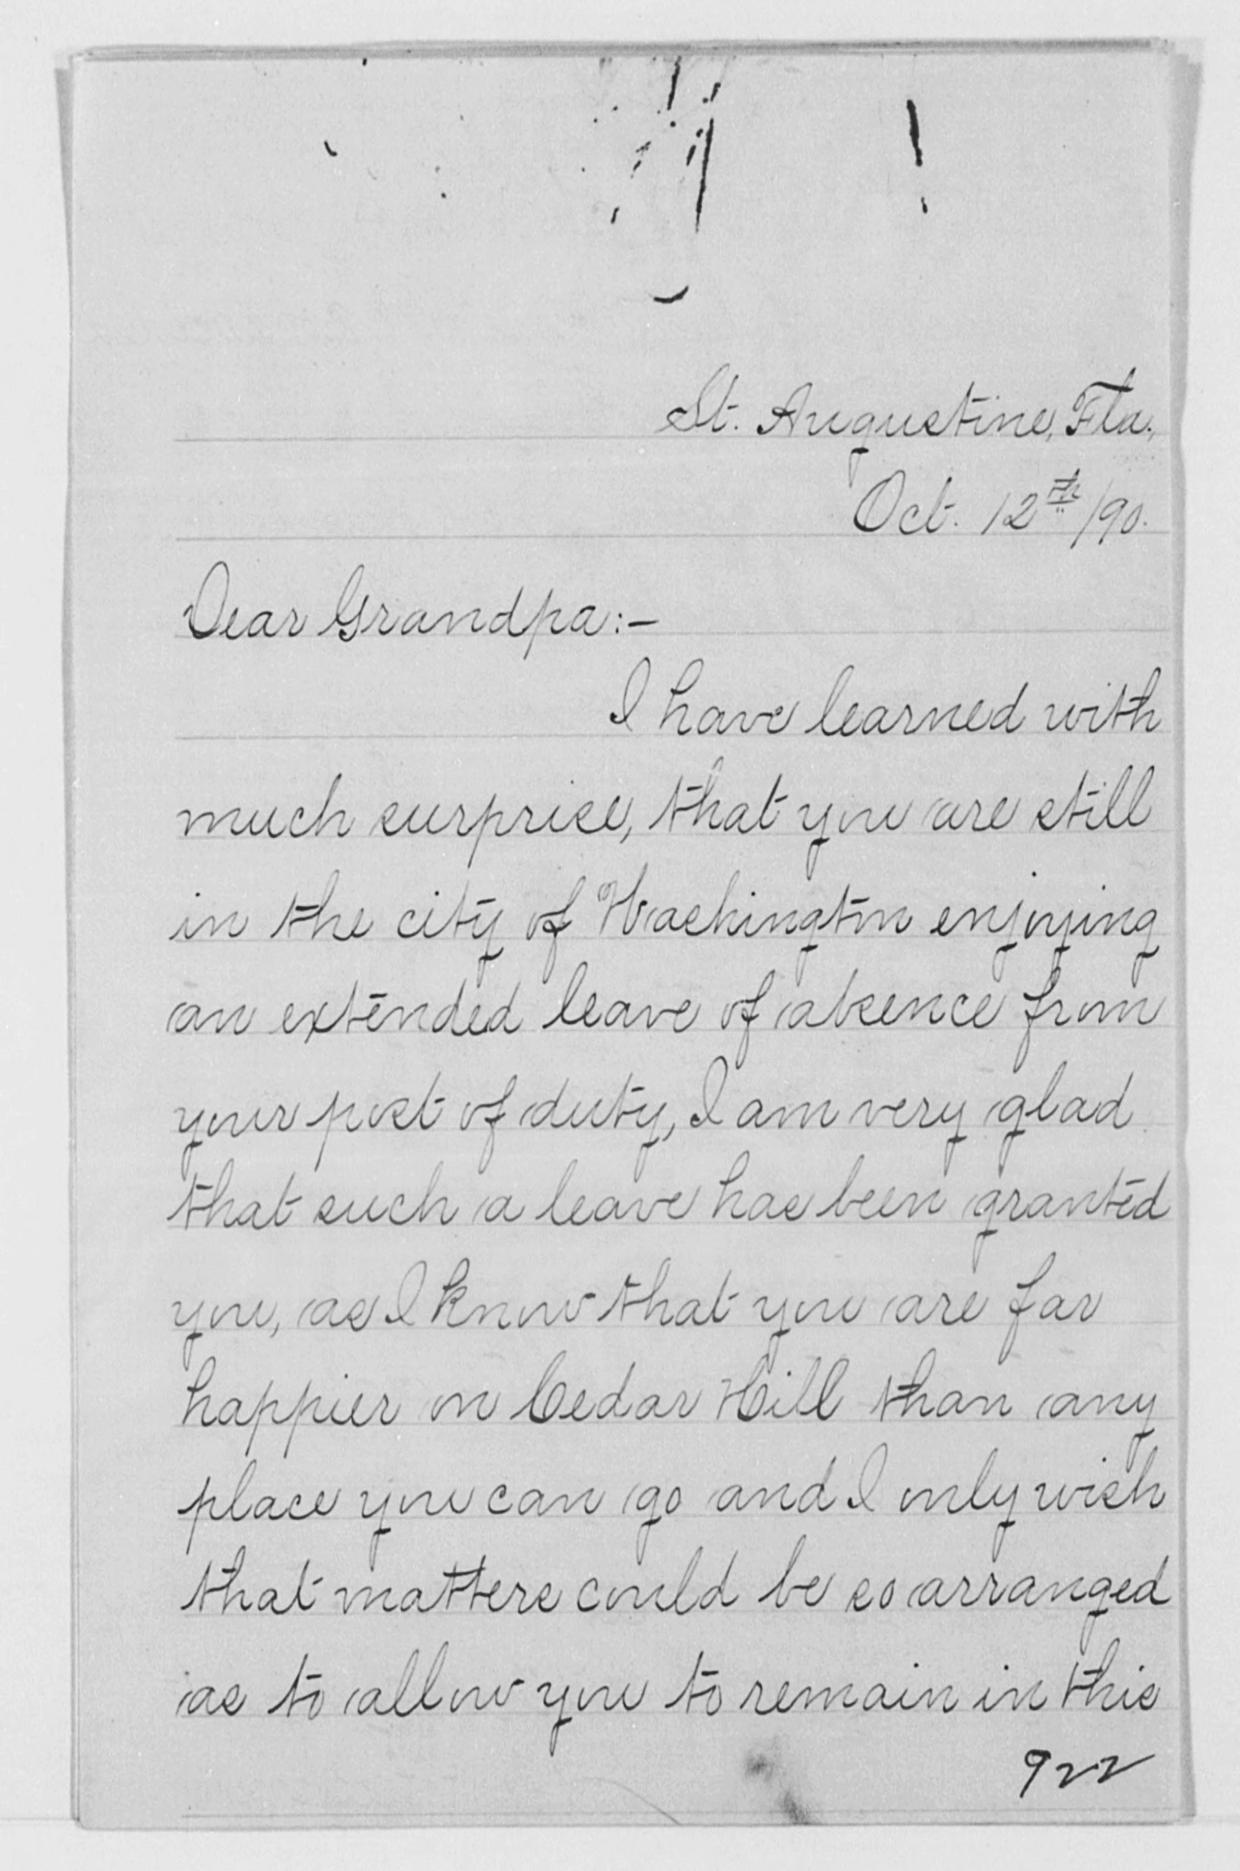 St. Augustine, Fla.,
Oct. 12th /90.
Dear Grandpa:-
I have learned with
much surprise, that you are still
in the city of Washington enjoying
an extended leave of absence from
your post of duty, I am very glad
that such a leave has been granted
you, as I know that you are far
happier on Cedar Hill than any
place you can go and I only wish
that matters could be so arranged
as to allow you to remain in this
922